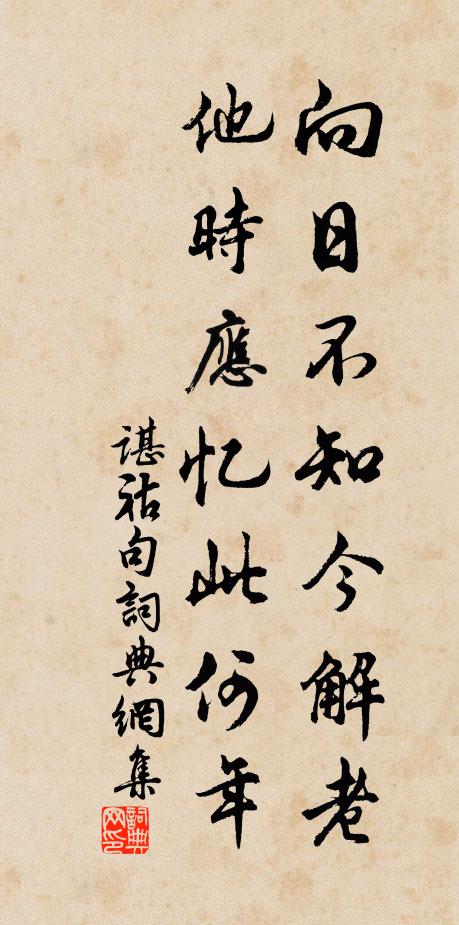 向日不知今解老
他時應忆此何年
谌祜句詞典網集
詞典网印